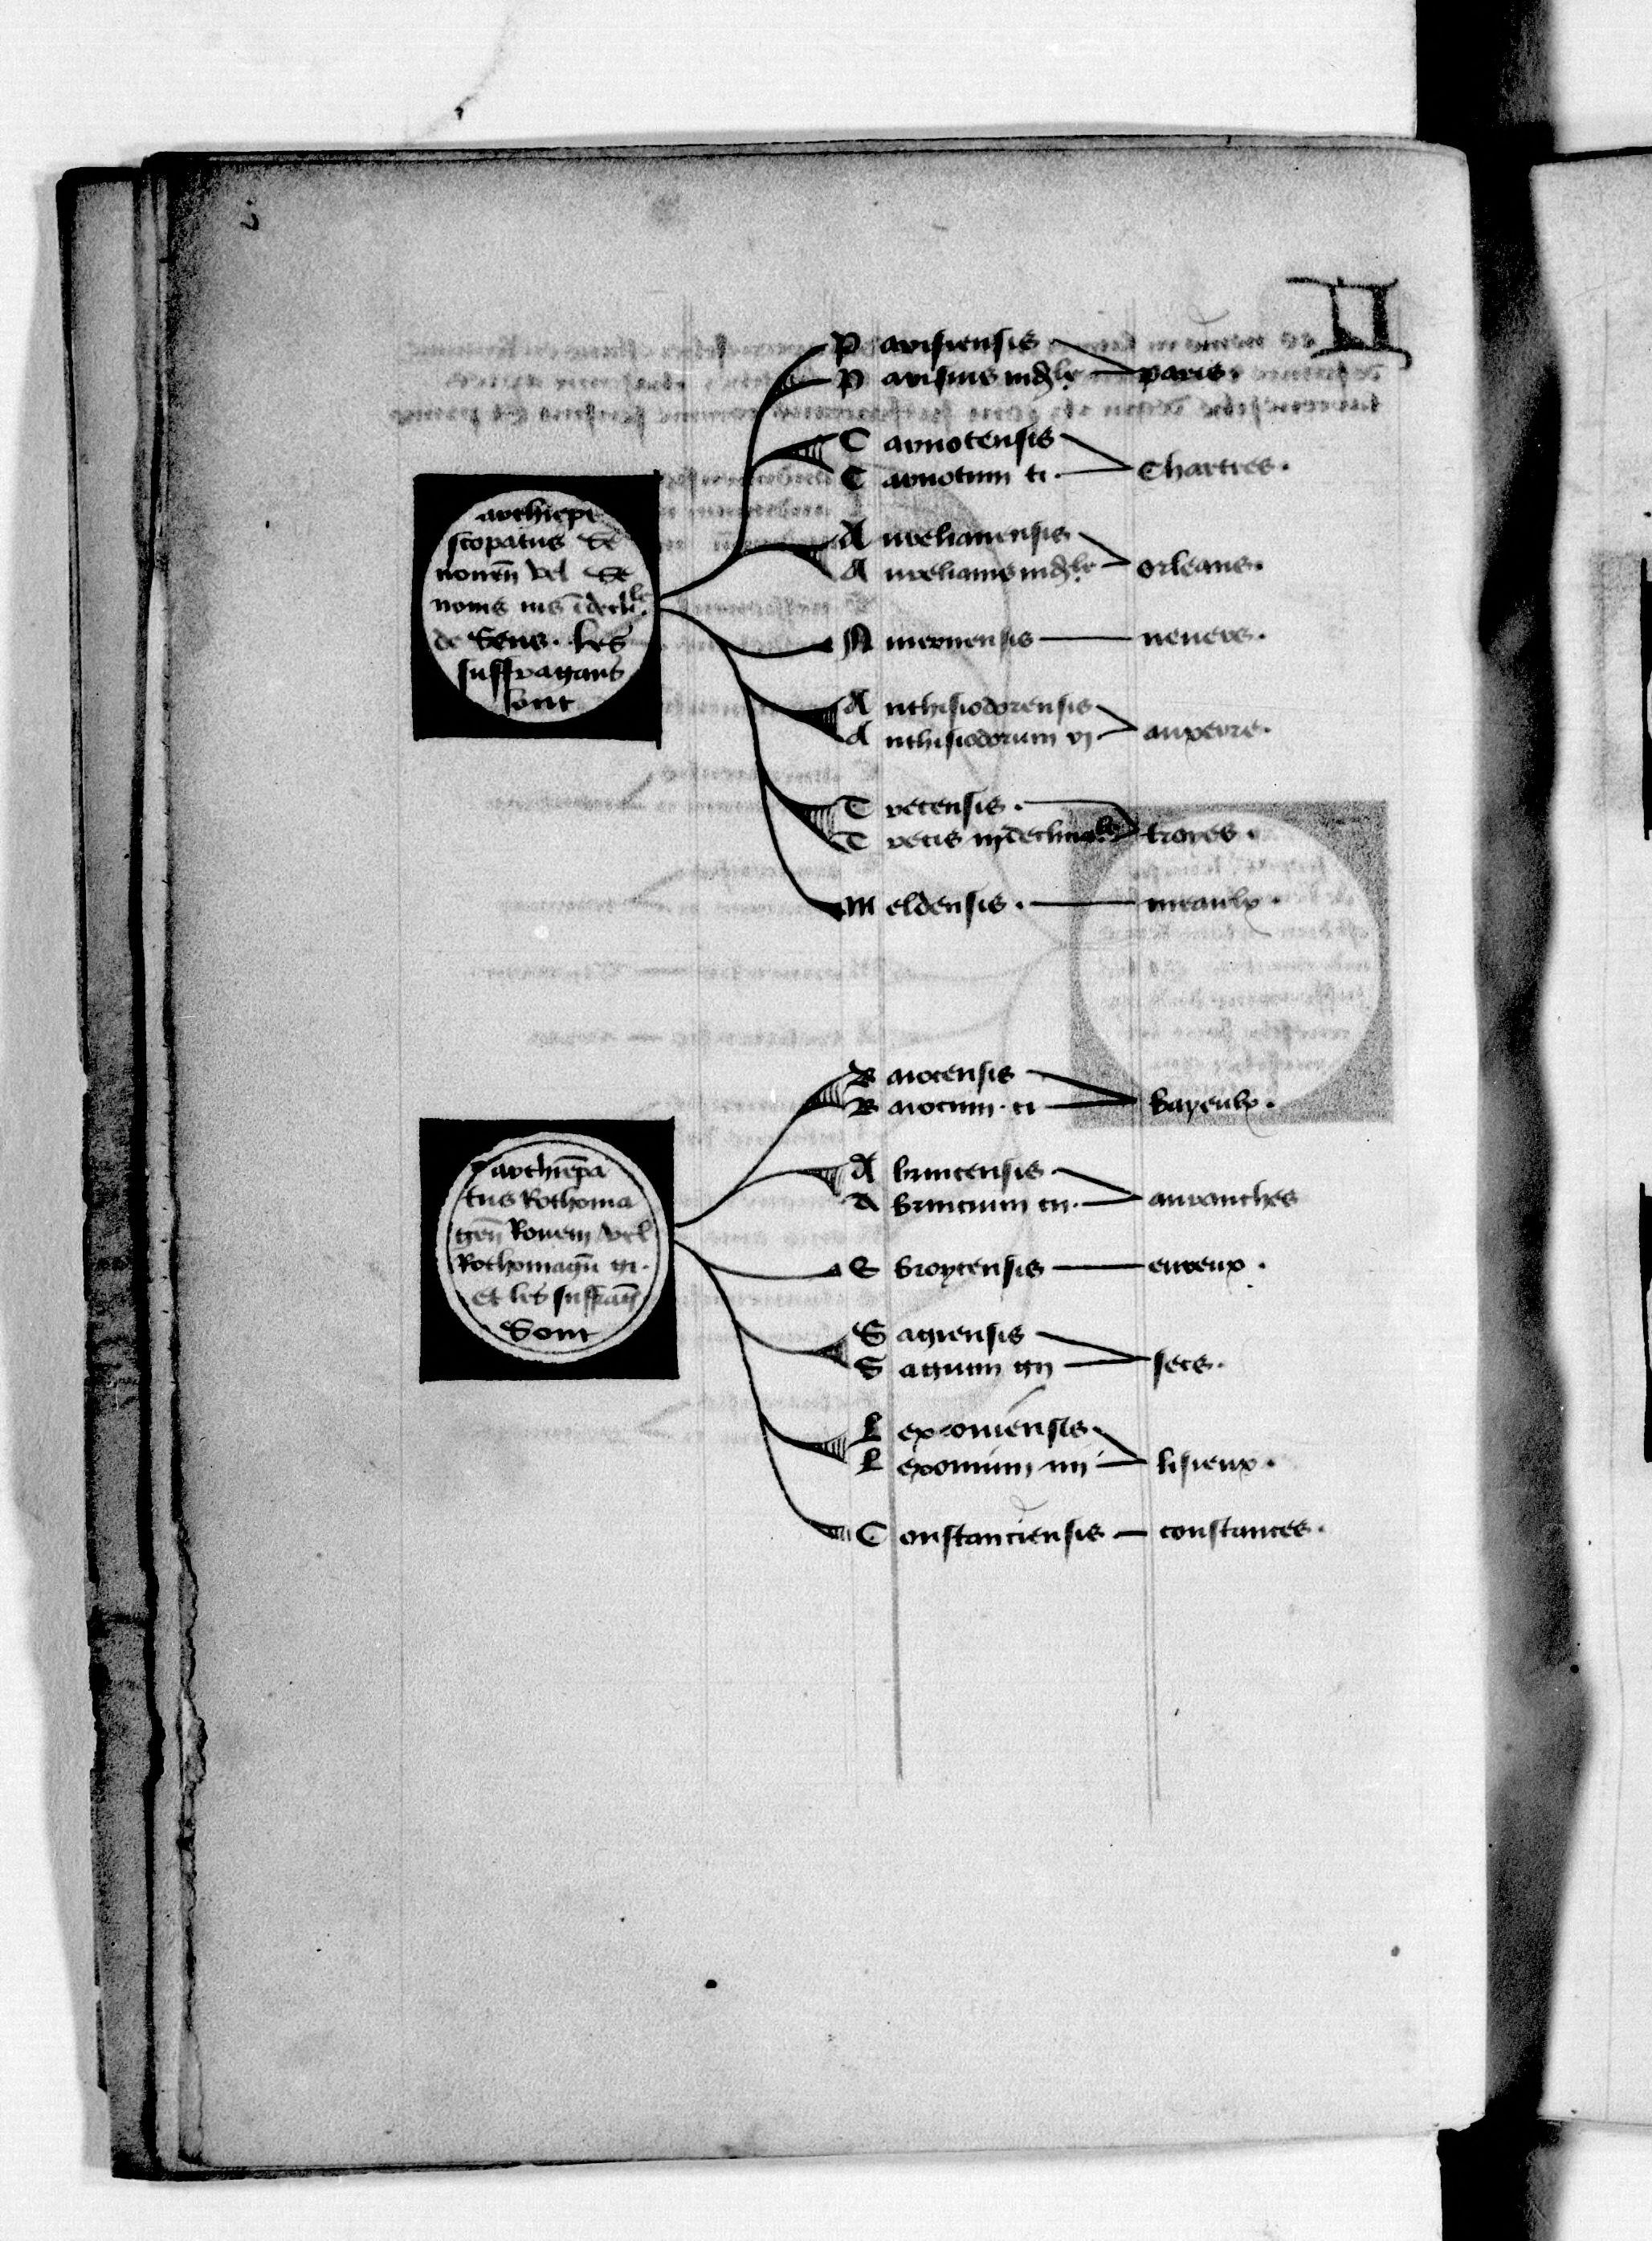 II
archiepi
scopatus Se
nonen̄ vel Se
nonis nis īdeclile
de Sens. les
suffragans
sont
P arisiensis
P arisius indle paris.
C arnotensis
C arnotum ti. Chartres.
A urelianensis
A urelianis indle orleans.
N ivernensis nevers.
A nthisiodorensis
A nthisiodorum ri auxerre.
T recensis.
T recis indeclinable troyes.
M eldensis. meaulx.
archiepā
tus Rothoma
gen̄ Rouem vel
Rothomagū gi.
et les suffrag̃
Sont
B aiocensis
B aiocum. ci bayeulx.
A brincensis
A brincium cii. avranches
E broycensis evreux.
S agiensis
S agium gii sees.
L exoniensis
L exonium nii lisieux.
C onstanciensis constances.